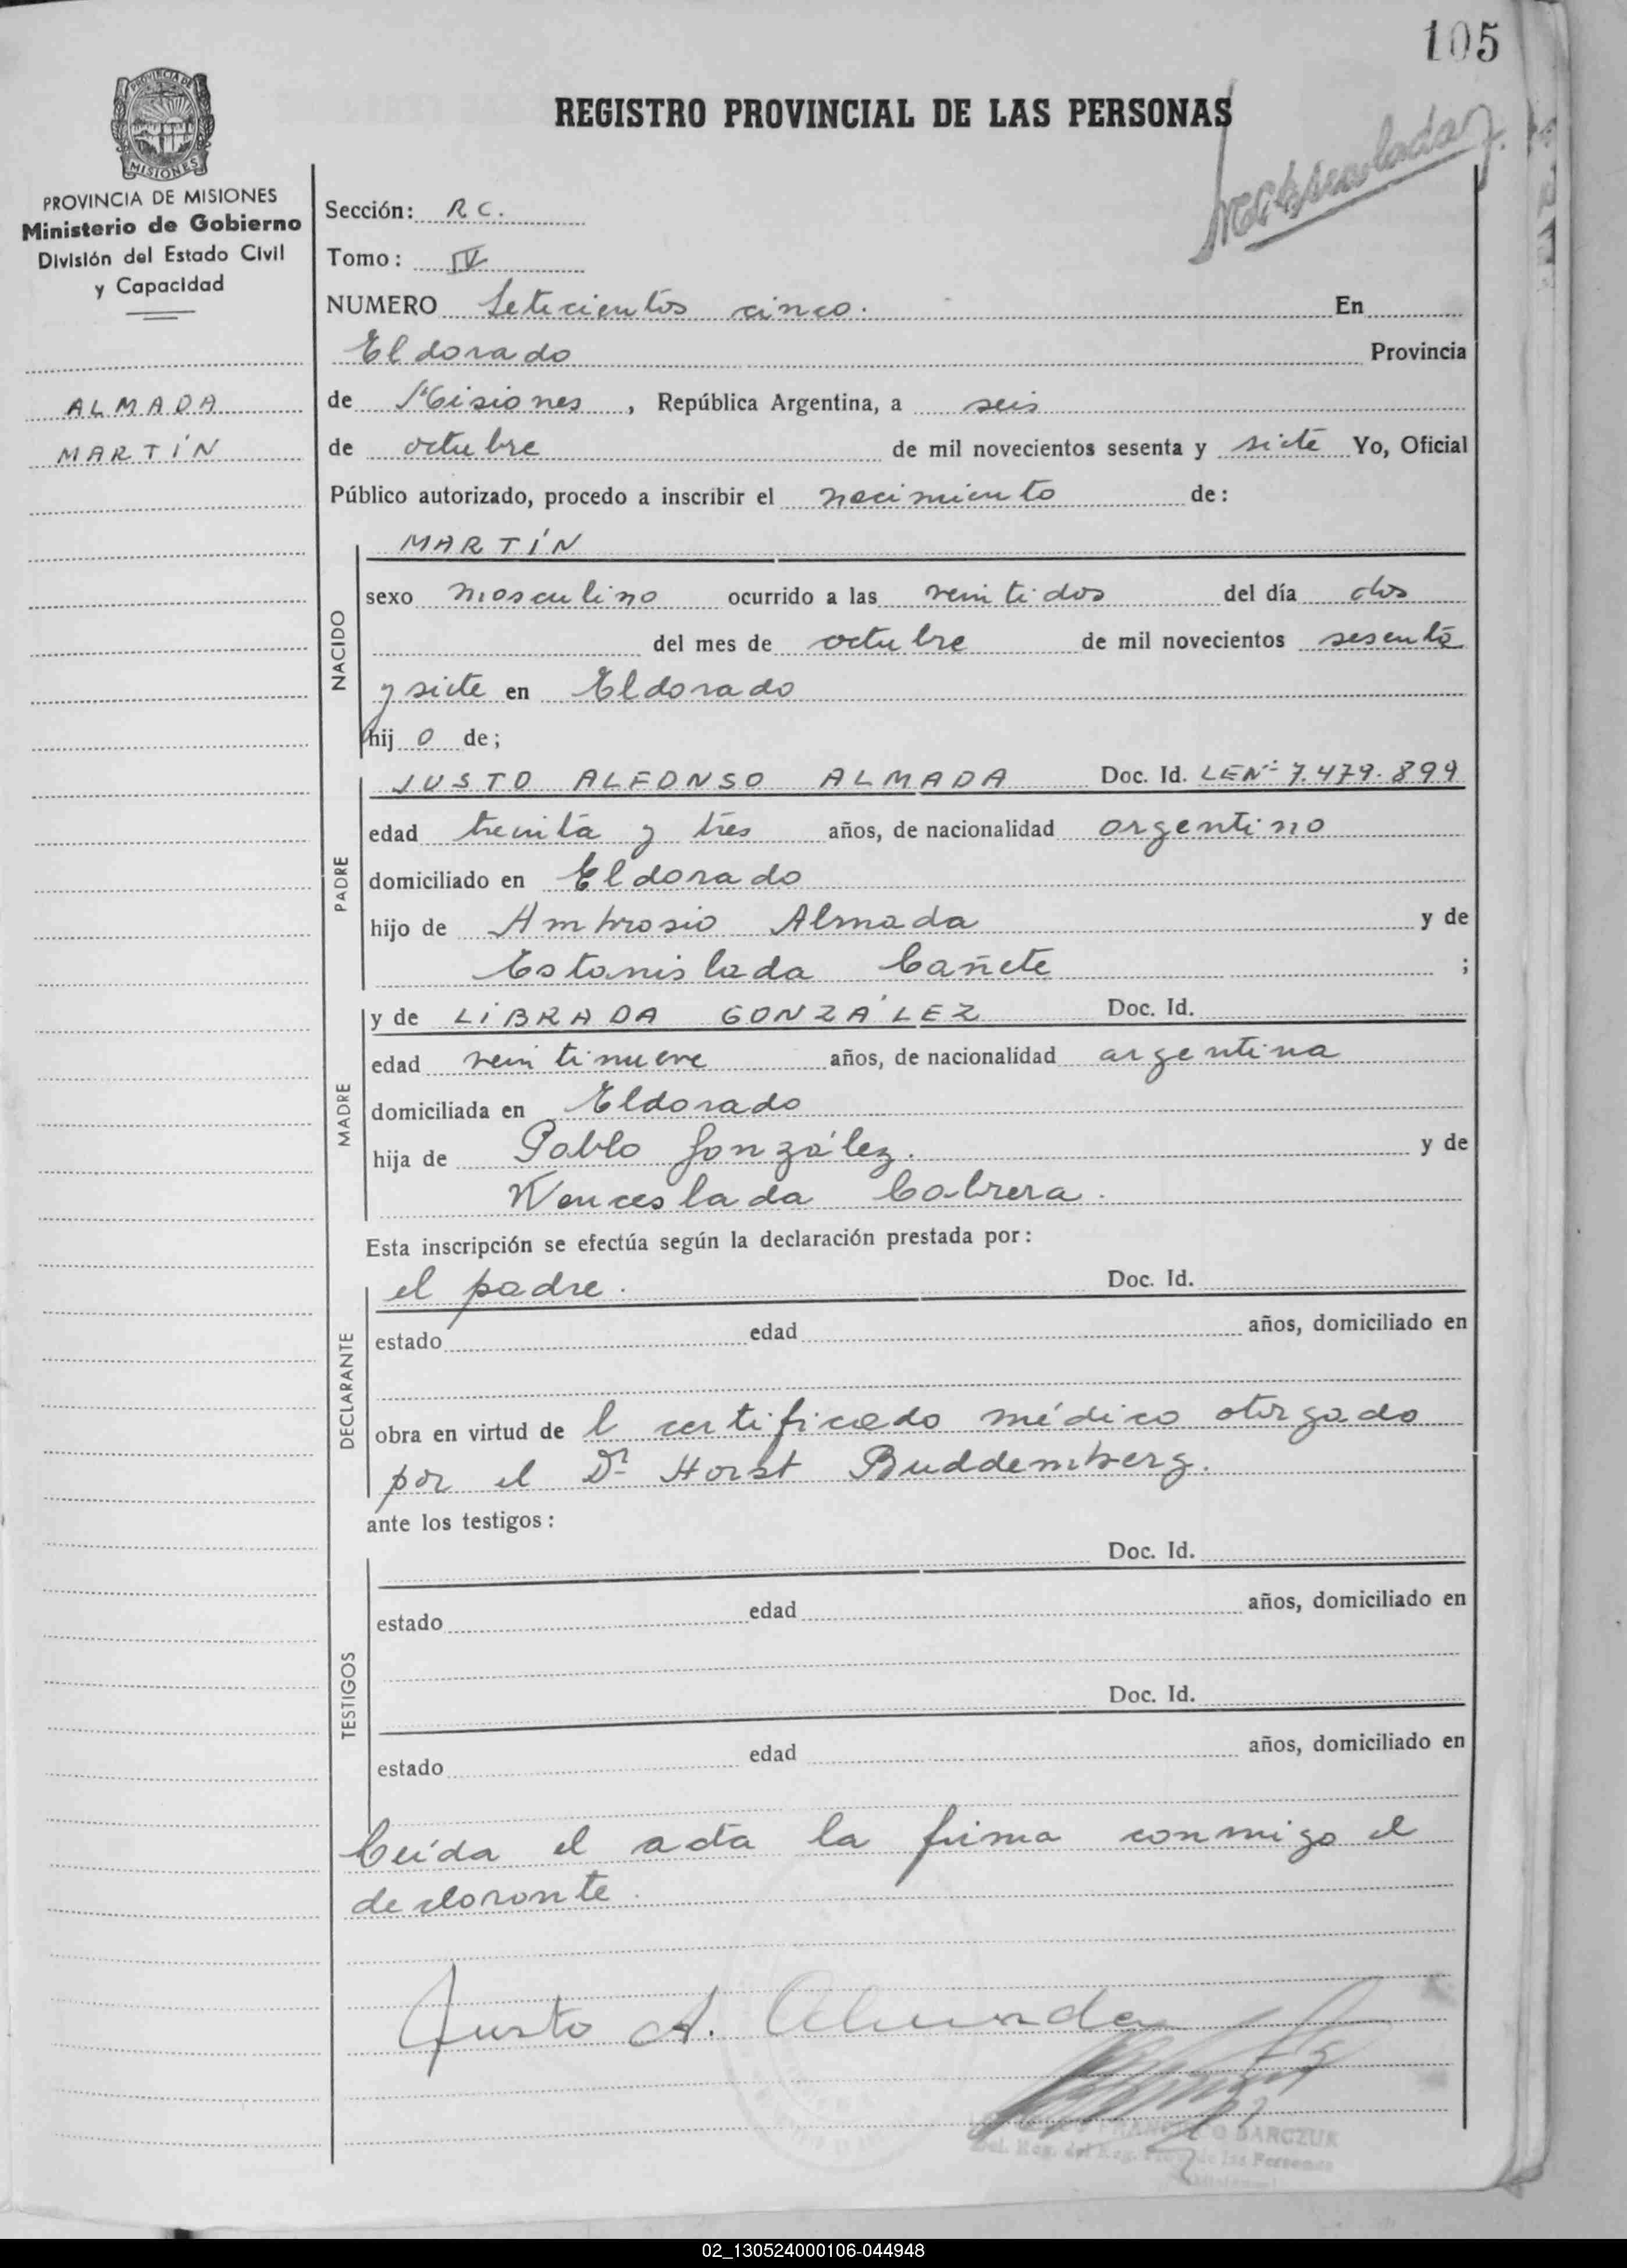 105
REGISTRO PROVINCIAL DE LAS PERSONAS
Matriculado
PROVINCIA DE MISIONES
MISIONES
PROVINCIA DE MISIONES
Ministerio de Gobierno
División del Estado Civil
y Capacidad
ALMADA
MARTÍN
Sección: R C.
Tomo: IV
NUMERO Setecientos cinco. En
Eldorado Provincia
de Misiones, República Argentina, a seis
de octubre de mil novecientos sesenta y siete Yo, Oficial
Público autorizado, procedo a inscribir el nacimiento de:
NACIDO
MARTÍN
sexo masculino ocurrido a las veintidos del día dos
del mes de octubre de mil novecientos sesenta
y siete en Eldorado
hij o de;
PADRE
JUSTO ALFONSO ALMADA Doc. Id. LENº 7.479.899
edad treinta y tres años, de nacionalidad argentino
domiciliado en Eldorado
hijo de Ambrosio Almada y de
Estanislada Cañete ;
MADRE
y de LIBRADA GONZÁLEZ Doc. Id.
edad veintinueve años, de nacionalidad argentina
domiciliada en Eldorado
hija de Pablo González. y de
Wenceslada Cabrera.
Esta inscripción se efectúa según la declaración prestada por:
DECLARANTE
el padre. Doc. Id.
estado edad años, domiciliado en
obra en virtud de l certificado médico otorgado
por el Dr Horst Buddemberg.
ante los testigos:
TESTIGOS
Doc. Id.
estado edad años, domiciliado en
Doc. Id.
estado edad años, domiciliado en
Leída el acta la firma conmigo el
declarante.
Justo A. Almada
BARCZUK
Del. Reg. del Reg. Prov. de las Personas
02_130524000106-044948